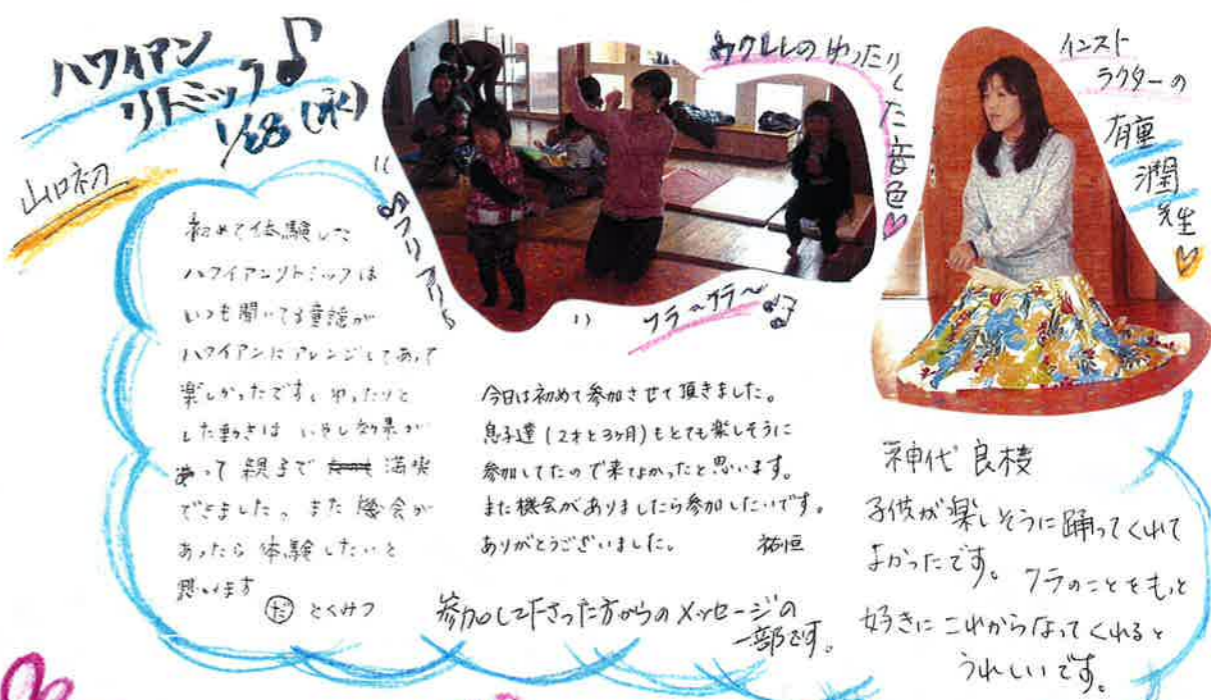 ハワイアン
リトミック♪
1/28(水)
山口初
ウクレレのゆったりした音色♡
インスト
ラクターの
有里
潤
先生♡
フリフリ
フラ〜フラ〜♫
初めて体験した
ハワイアンリトミックは
いつも聞いてる童謡が
ハワイアンにアレンジしてあって
楽しかったです。ゆったりと
した動きは いやし効果が
あって 親子で 満喫
できました。また 機会が
あったら 体験したいと
思います
とくみつ
今日は初めて参加させて頂きました。
息子達(2才と3ヶ月)もとても楽しそうに
参加してたので来てよかったと思います。
また機会がありましたら参加したいです。
ありがとうございました。 祐恒
神代 良棲
子供が楽しそうに踊ってくれて
よかったです。フラのことをもっと
好きに これからなってくれると
うれしいです。
参加して下さった方からのメッセージの
一部です。